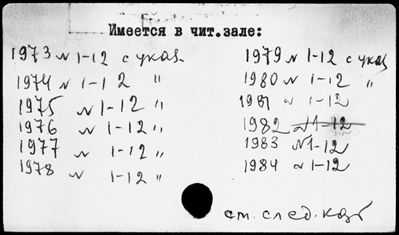 Имеется в чит.зале:
1973 N 1-12 с указ.
1974 N 1-12 "
1975 N 1-12 "
1976 N 1-12 "
1977 N 1-12 "
1978 N 1-12 "
1979 N 1-12 с указ
1980 N 1-12 "
1981 N 1-12
1982 N 1-12
1983 N 1-12
1984 N 1-12
см. след.